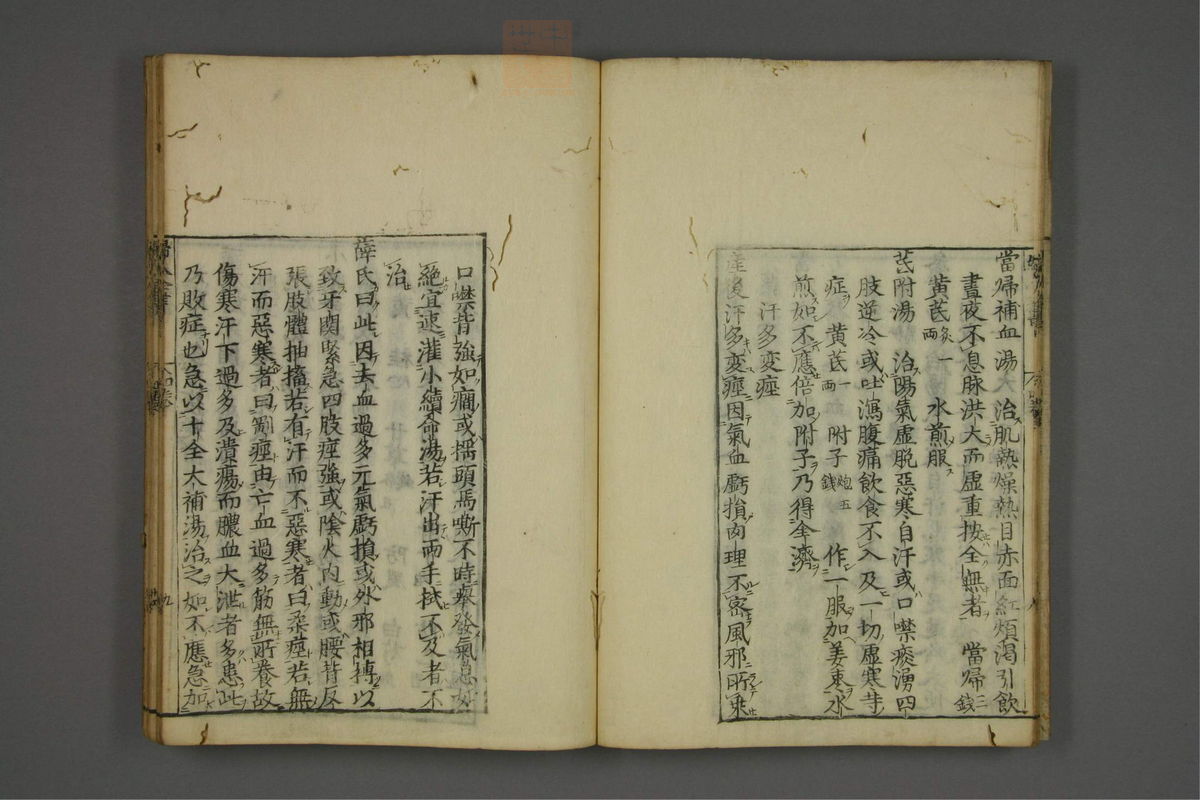 當歸補血湯 治肌熱燥熱目赤面紅煩渴引飲
晝夜不息脉洪大而虛重按全無者 當歸二錢
黄芪炙一兩 水煎服
芪附湯 治陽氣虛脫惡寒自汗或口噤痰湧四
肢逆冷或吐瀉腹痛飲食不入及一切虛寒等
症 黄芪一兩 附子炮五錢 作一服加姜棗水
煎如不應倍加附子乃得全濟
汗多変痙
産後汗多変痙因氣血虧損肉理不密風邪所乗
口噤背強如癇或揺頭馬嘶不時舉發氣息如
絕宜速灌小續命湯若汗出兩手拭不及者不
治
薛氏曰此因去血過多元氣虧損或外邪相搏以
致牙関緊急四肢痙強或陰火内動或腰背反
張肢體抽搐若有汗而不惡寒者曰柔痙若無
汗而惡寒者曰剛痙由亡血過多筋無所養故
傷寒汗下過多及潰瘍而膿血大泄者多患此
乃敗症也急以十全大補湯治之如不應急加
九